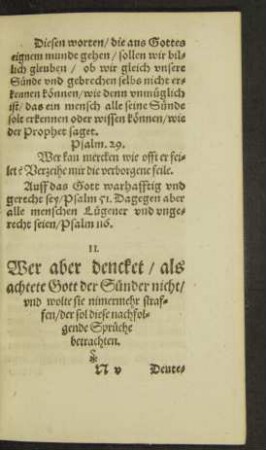 Diesen worten/ die aus Gottes
eignem munde gehen/ sollen wir bil-
lich gleuben/ ob wir gleich vnsere
Sünde vnd gebrechen selbs nicht er-
kennen können/ wie denn vnmüglich
ist/ das ein mensch alle seine Sünde
solt erkennen oder wissen können/ wie
der Prophet saget.
Psalm. 29.
Wer kan mercken wie offt er fei-
let? Verzeihe mir die verborgene feile.
Auff das Gott warhafftig vnd
gerecht sey/ Psalm 51. Dagegen aber
alle menschen Lügener vnd vnge-
recht seien/ Psalm 116.
II.
Wer aber dencket/ als
achtete Gott der Sünder nicht/
vnd wolte sie nimermehr straf-
fen/ der sol diese nachfol-
gende Sprüche
betrachten.
N v Deute-